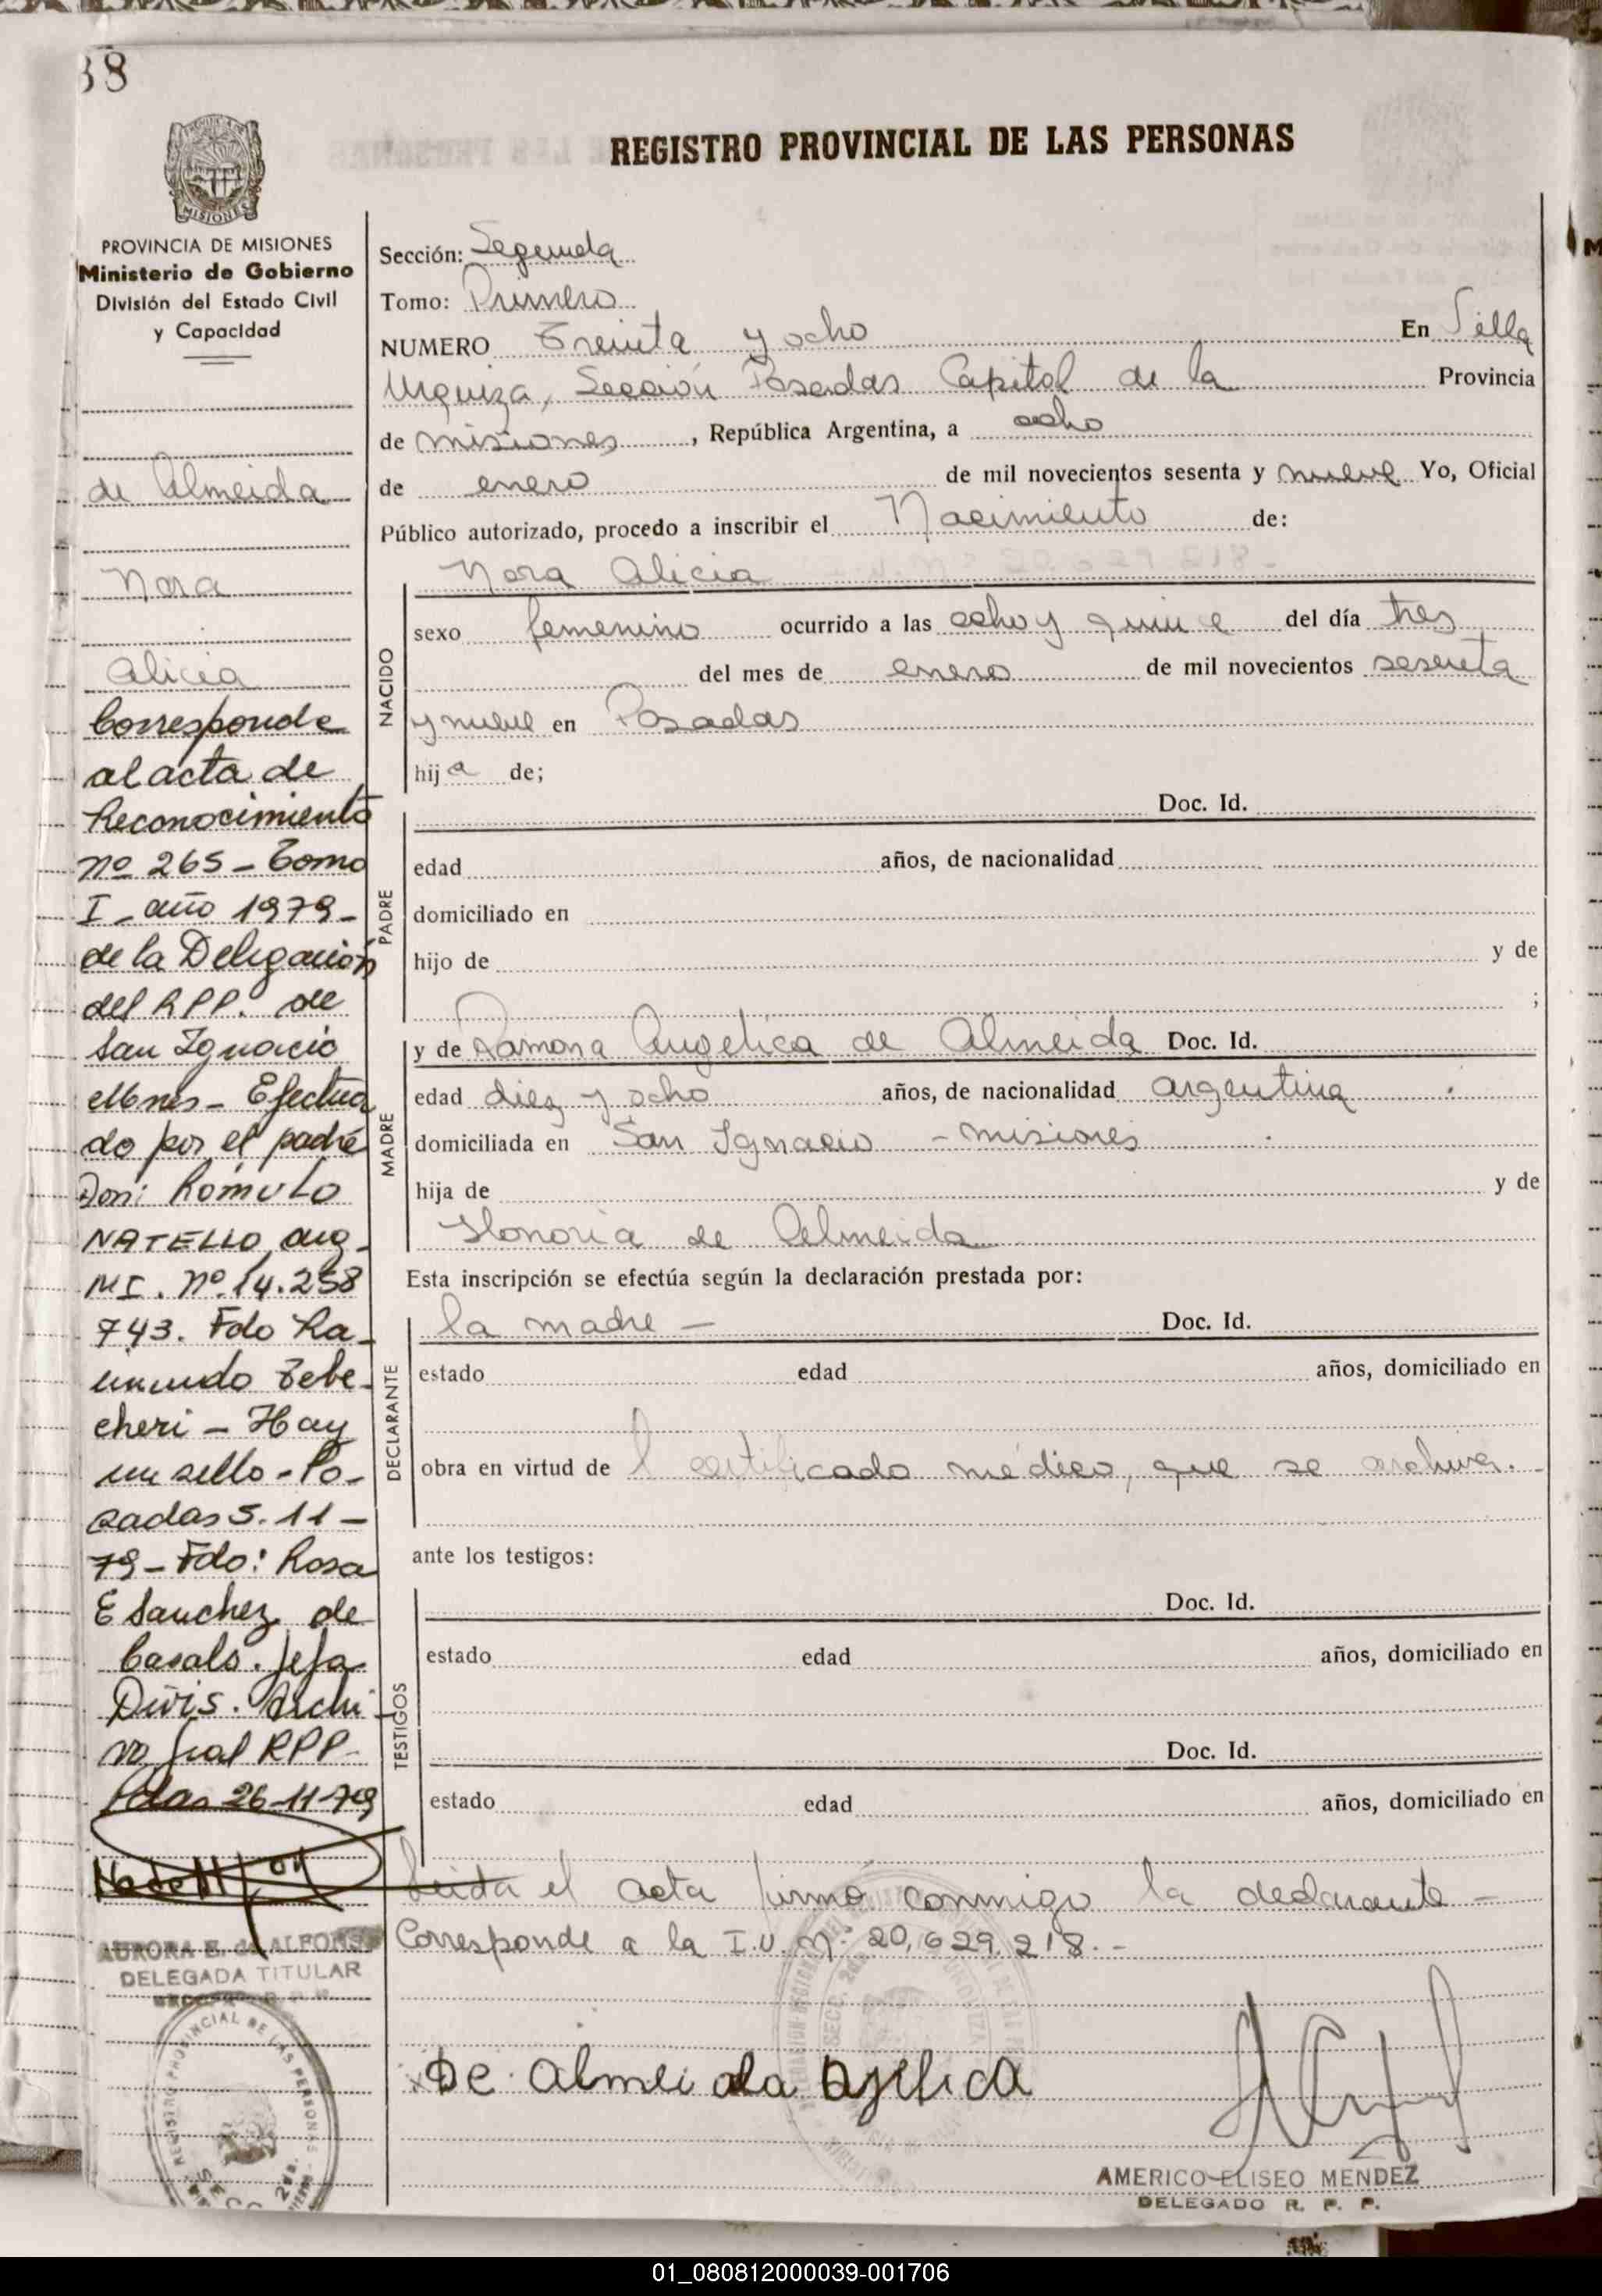 38
REGISTRO PROVINCIAL DE LAS PERSONAS
MISIONES
PROVINCIA DE MISIONES
Ministerio de Gobierno
División del Estado Civil
y Capacidad
de Almeida
Nora
Alicia
Corresponde
al acta de
Reconocimiento
nº 265 - Tomo
I - año 1979 -
de la Delegación
del RPP. de
San Ignacio
Mnes - Efectua
do por el padre
Don: Romulo
NATELLO, arg -
MI. Nº 14.258
743. Fdo Ra -
imundo Tebe -
cheri - Hay
un sello - Po -
sadas 5. 11 -
79 - Fdo: Rosa
E Sanchez de
Casals. Jefa
Divis. Archi -
vo Gral RPP -
Pdas 26-11-79
AURORA E. de ALFONSO
DELEGADA TITULAR
REGISTRO PROVINCIAL DE LAS PERSONAS
SECC. 2da.
Sección: Segunda
Tomo: Primero
NUMERO Treinta y ocho En Villa
Urquiza, Sección Posadas Capital de la Provincia
de misiones, República Argentina, a ocho
de enero de mil novecientos sesenta y nueve Yo, Oficial
Público autorizado, procedo a inscribir el Nacimiento de:
Nora Alicia
NACIDO
sexo femenino ocurrido a las ocho y quince del día tres
del mes de enero de mil novecientos sesenta
y nueve en Posadas
hija de;
PADRE
Doc. Id.
edad años, de nacionalidad
domiciliado en
hijo de y de
;
MADRE
y de Ramona Angelica de Almeida Doc. Id.
edad diez y ocho años, de nacionalidad argentina
domiciliada en San Ignacio - misiones
hija de y de
Honoria de Almeida
Esta inscripción se efectúa según la declaración prestada por:
DECLARANTE
la madre - Doc. Id.
estado edad años, domiciliado en
obra en virtud de l certificado médico, que se archiva. -
ante los testigos:
TESTIGOS
Doc. Id.
estado edad años, domiciliado en
Doc. Id.
estado edad años, domiciliado en
Leída el acta firmó conmigo la declarante -
Corresponde a la I.U. Nº 20,629,218. -
De almeida agelica
AMERICO ELISEO MENDEZ
DELEGADO R. P. P.
01_080812000039-001706